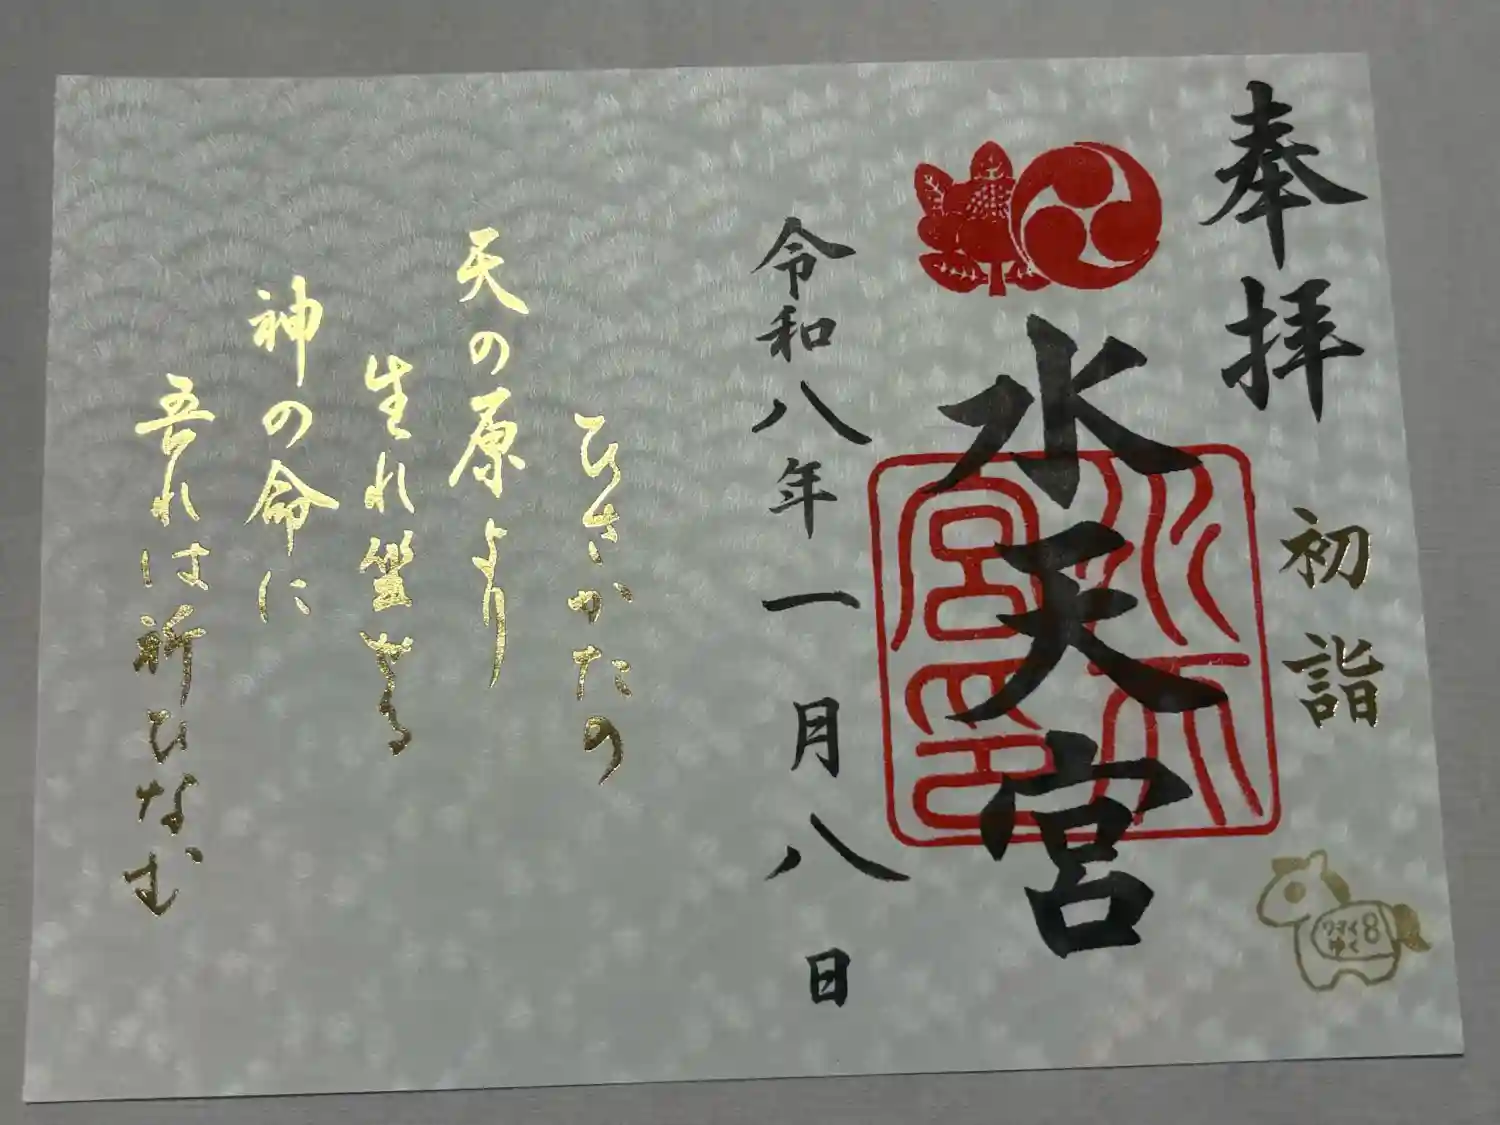 奉拝
初詣
ウマイ8
ゆく
水天宮
水天宮印
令和八年一月八日
ひさかたの
天の原より
生れ坐せる
神の命に
吾れは祈ひなむ